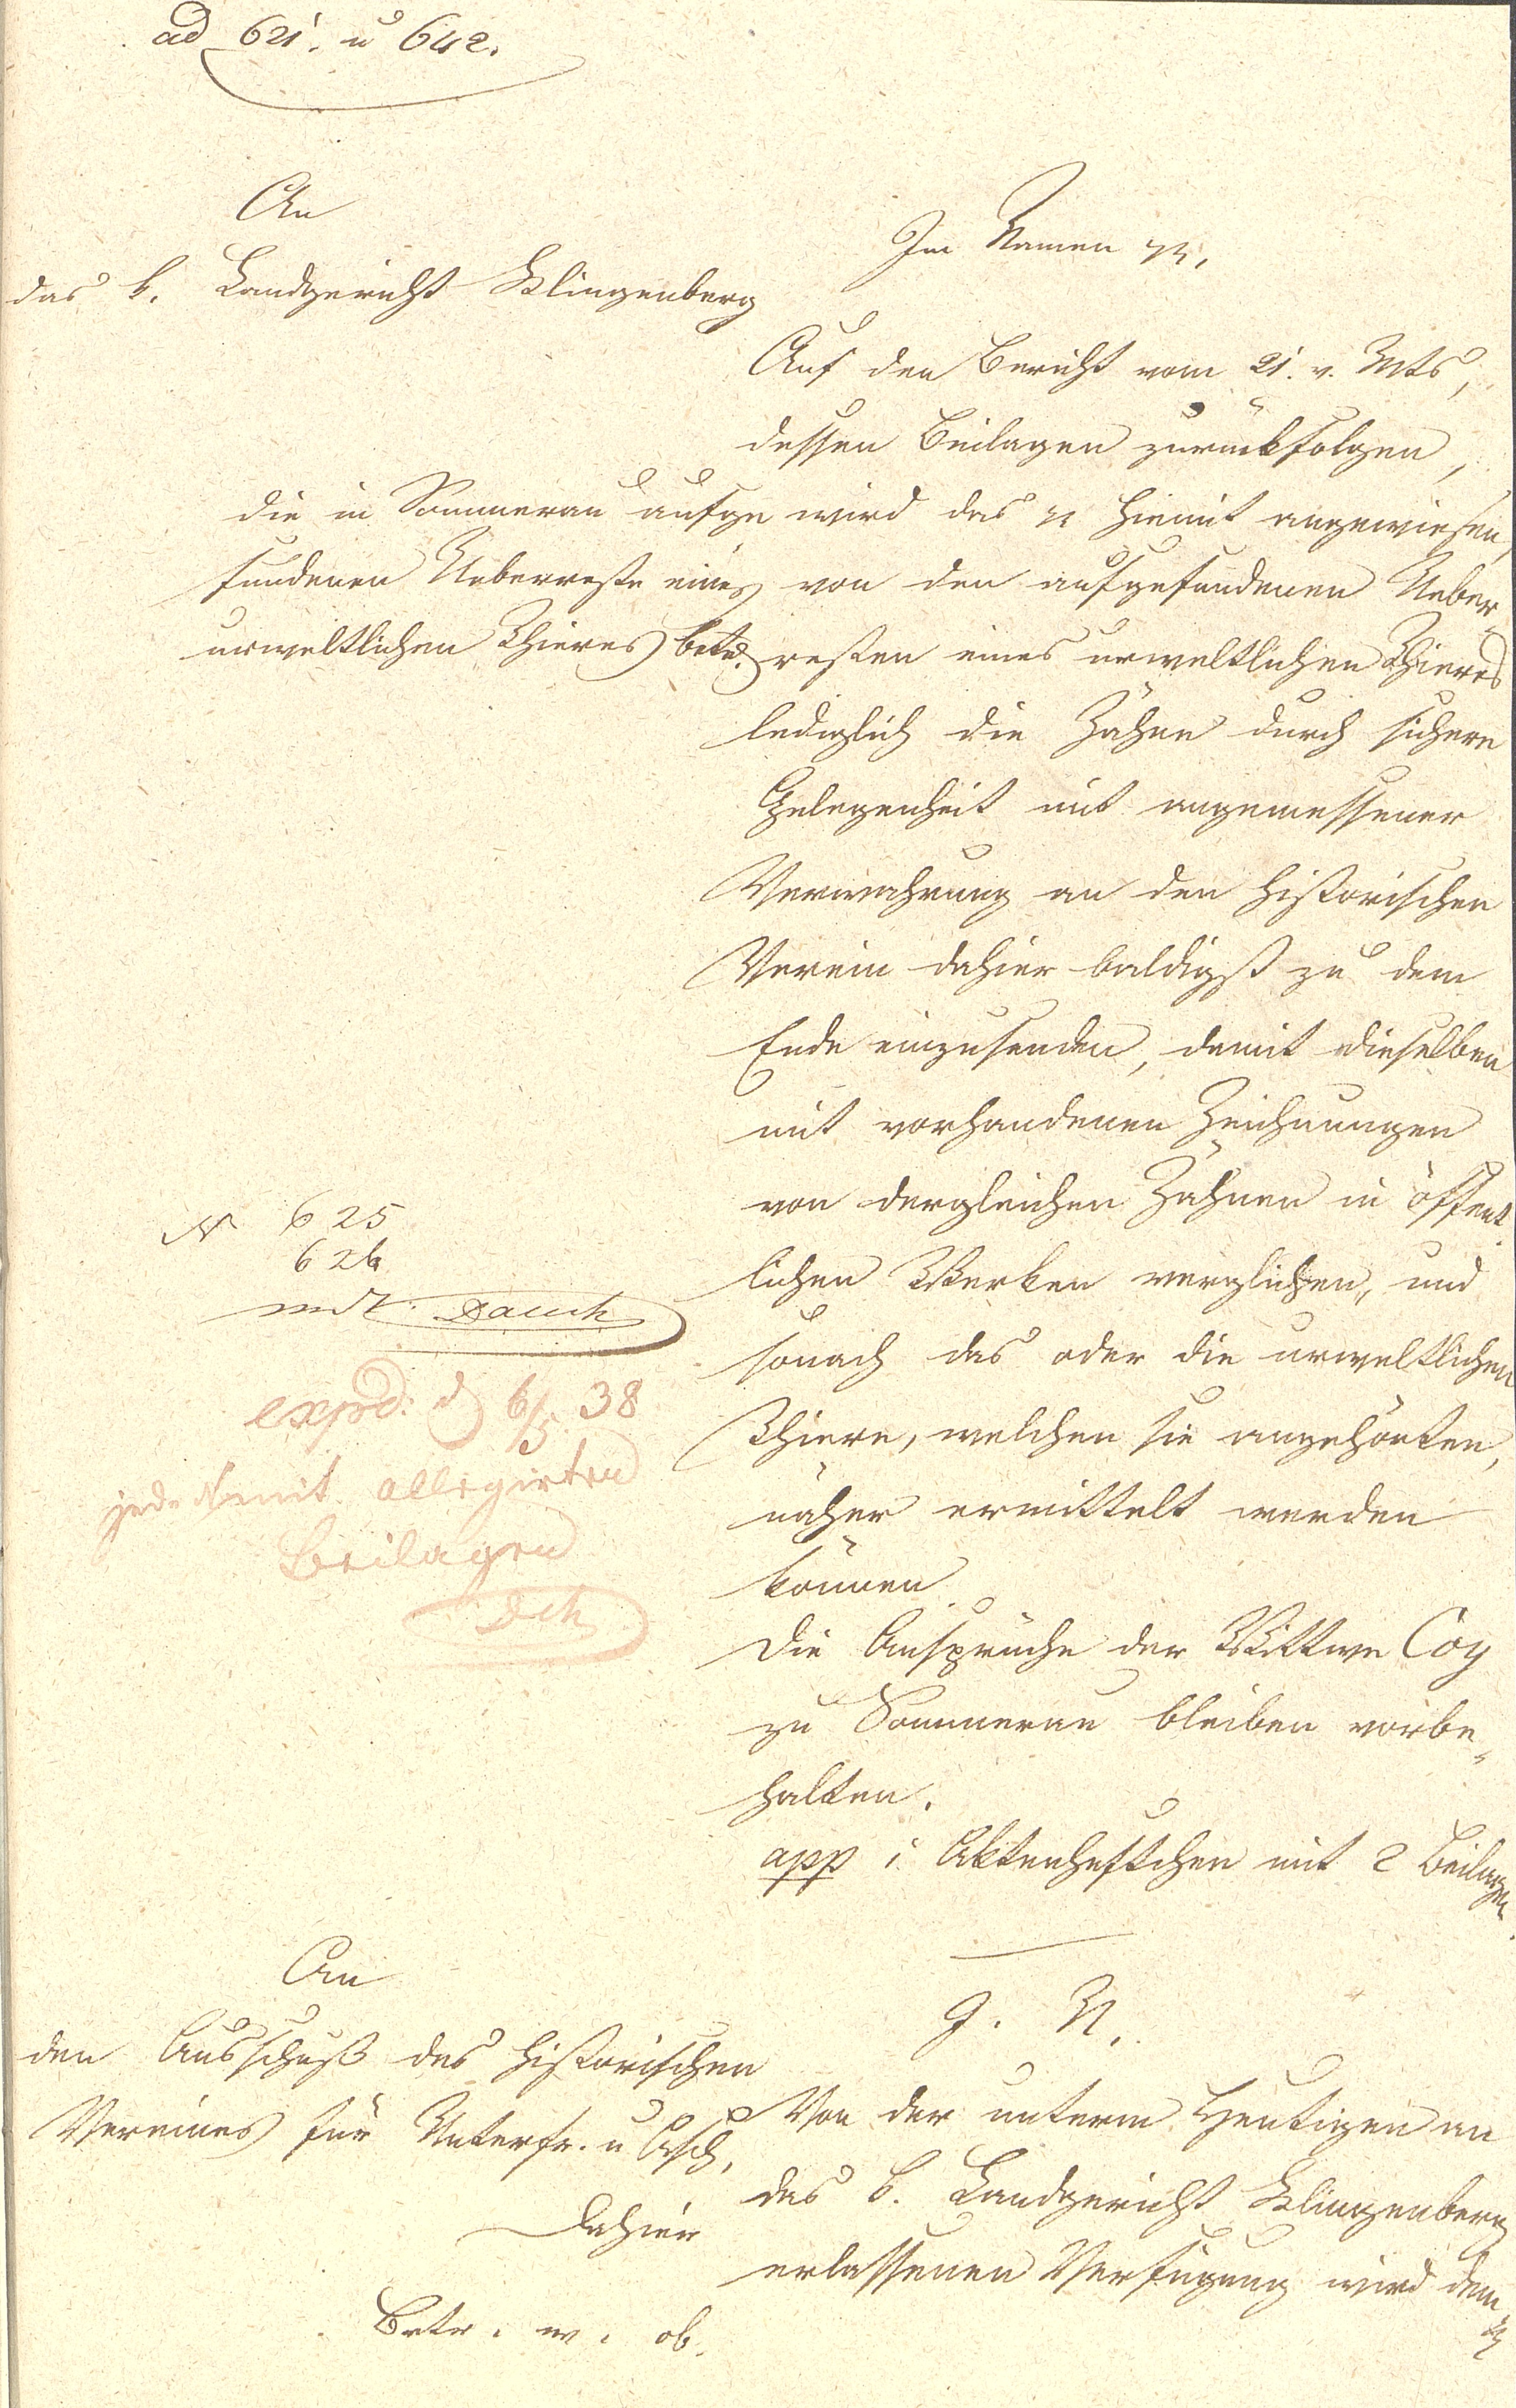 ad 621. u 642.
An
das k. Landgericht Klingenberg
die in Sommerau aufge
fundenen Ueberreste eines
urweltlichen Thieres betr.
Im Namen
Auf den Bericht vom 21. v. Mts,
dessen Beilagen zurückfolgen,
wird das hiemit angewiesen,
von den aufgefundenen Ueber-
resten eines urweltlichen Thieres
lediglich die Zähne durch sichere
Gelegenheit mit angemessener
Verwahrung an den historischen
Verein dahier baldigst zu dem
Ende einzusenden, damit dieselben
mit vorhandenen Zeichnungen
von dergleichen Zähnen in öffent
lichen Werken verglichen, und
sonach das oder die urweltlichen
Thiere, welchen sie angehörten,
näher ermittelt werden
können.
Die Ansprüche der Wittwe Coy
zu Sommerau bleiben vorbe-
halten.
app 1 Aktenheftchen mit 2 Beilagen.
N 625
626
mdt. Dauch
expd: d 6/5 38
jede N mit allegirten
Beilagen
Dch
An
den Ausschuß des historischen
Vereines für Unterfr. u Asch.
dahier
Betr. w. ob.
J. N.
Von der unterm Heutigen an
das k. Landgericht Klingenberg
erlassenen Verfügung wird dem